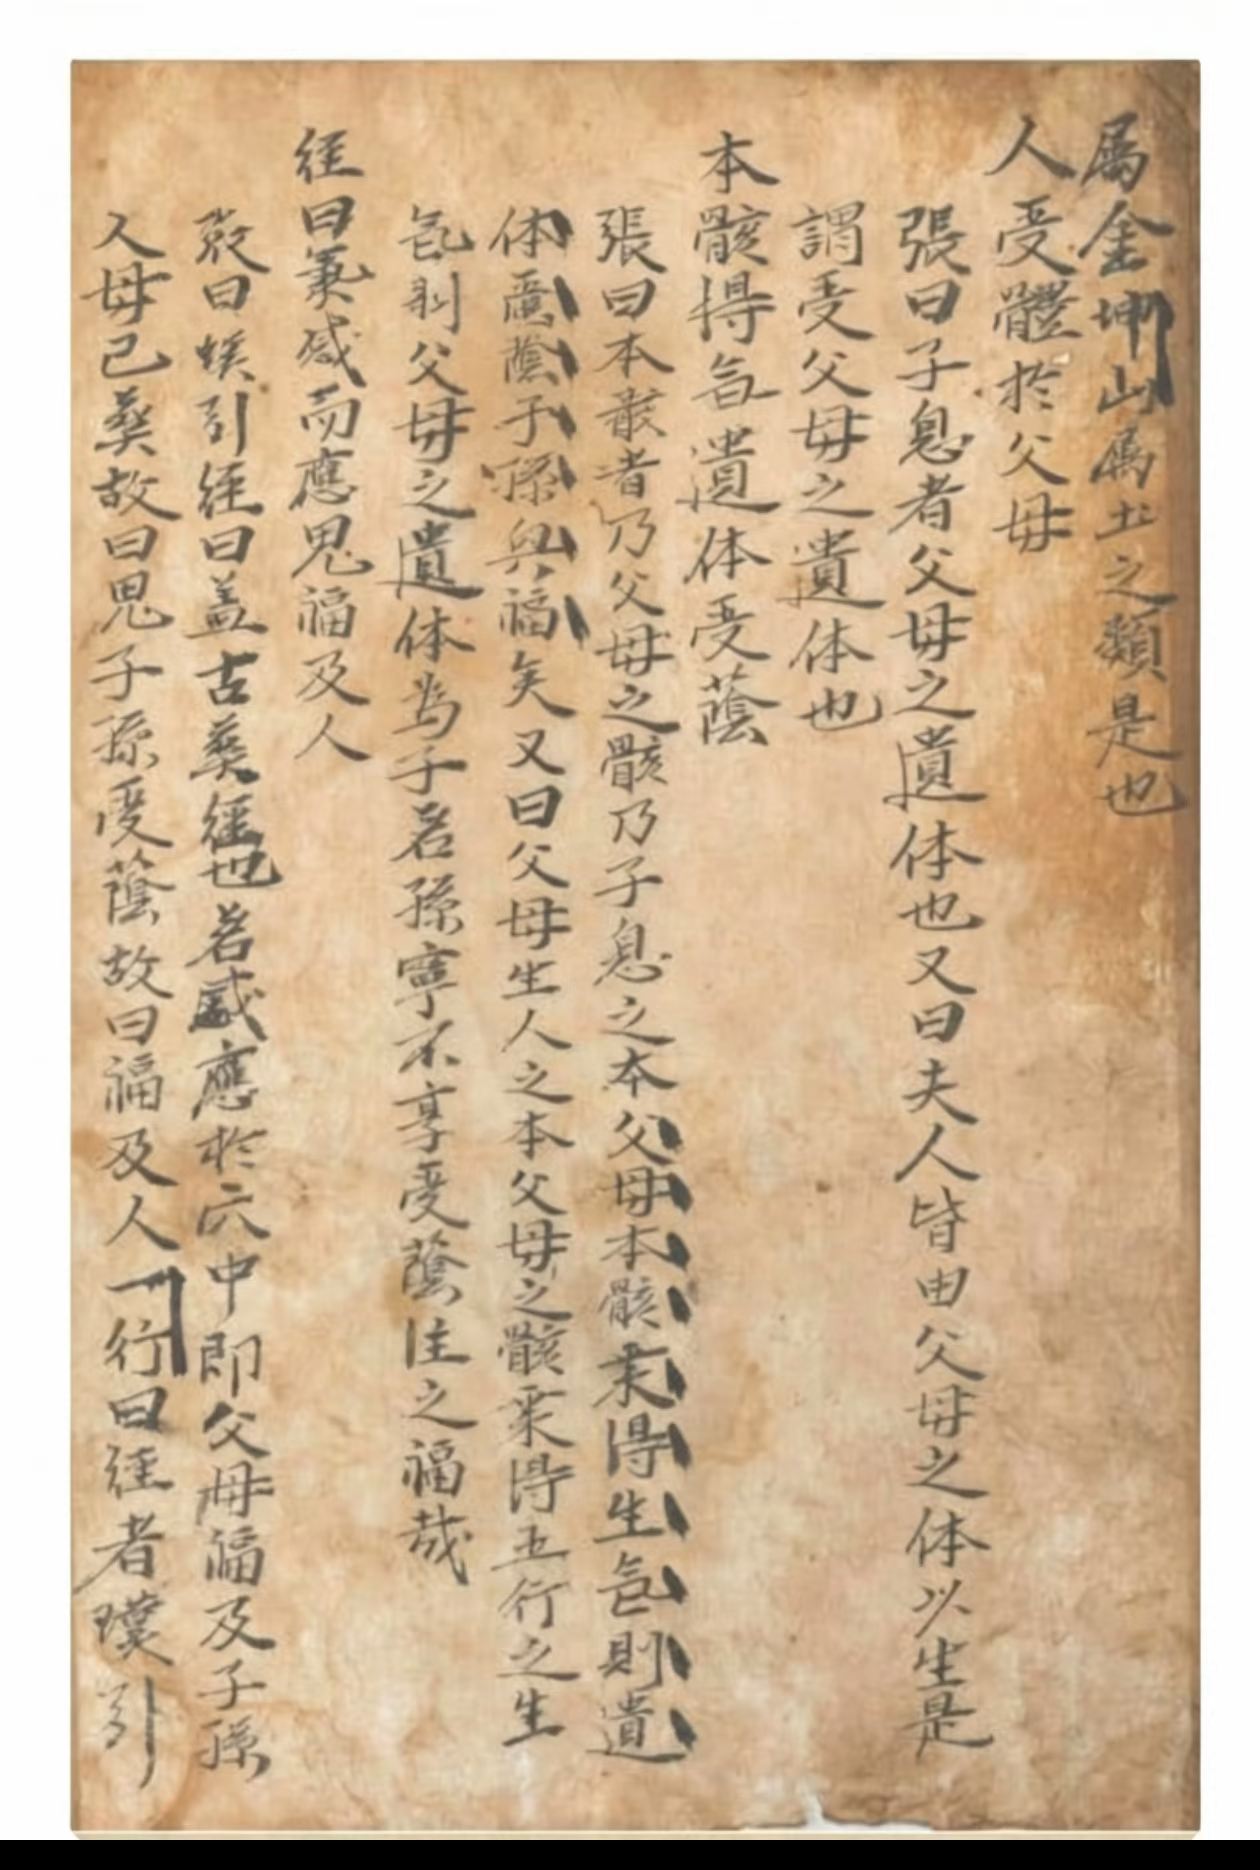 屬金坤山屬土之類是也
人受體於父母
張曰子息者父母之遺体也又曰夫人皆由父母之体以生是
謂受父母之遺体也
本骸得氣遺体受蔭
張曰本骸者乃父母之骸乃子息之本父母本骸乘得生氣則遺
体鷹蔭子孫與福矣又曰父母生人之本父母之骸乘得五行之生
氣則父母之遺体為子若孫寧不享受蔭注之福哉
経曰氣感而應鬼福及人
曰璞引経曰盖古葬経也若感應於穴中即父母福及子孫
人母已葬故曰鬼子孫受蔭故曰福及人一行曰経者璞引